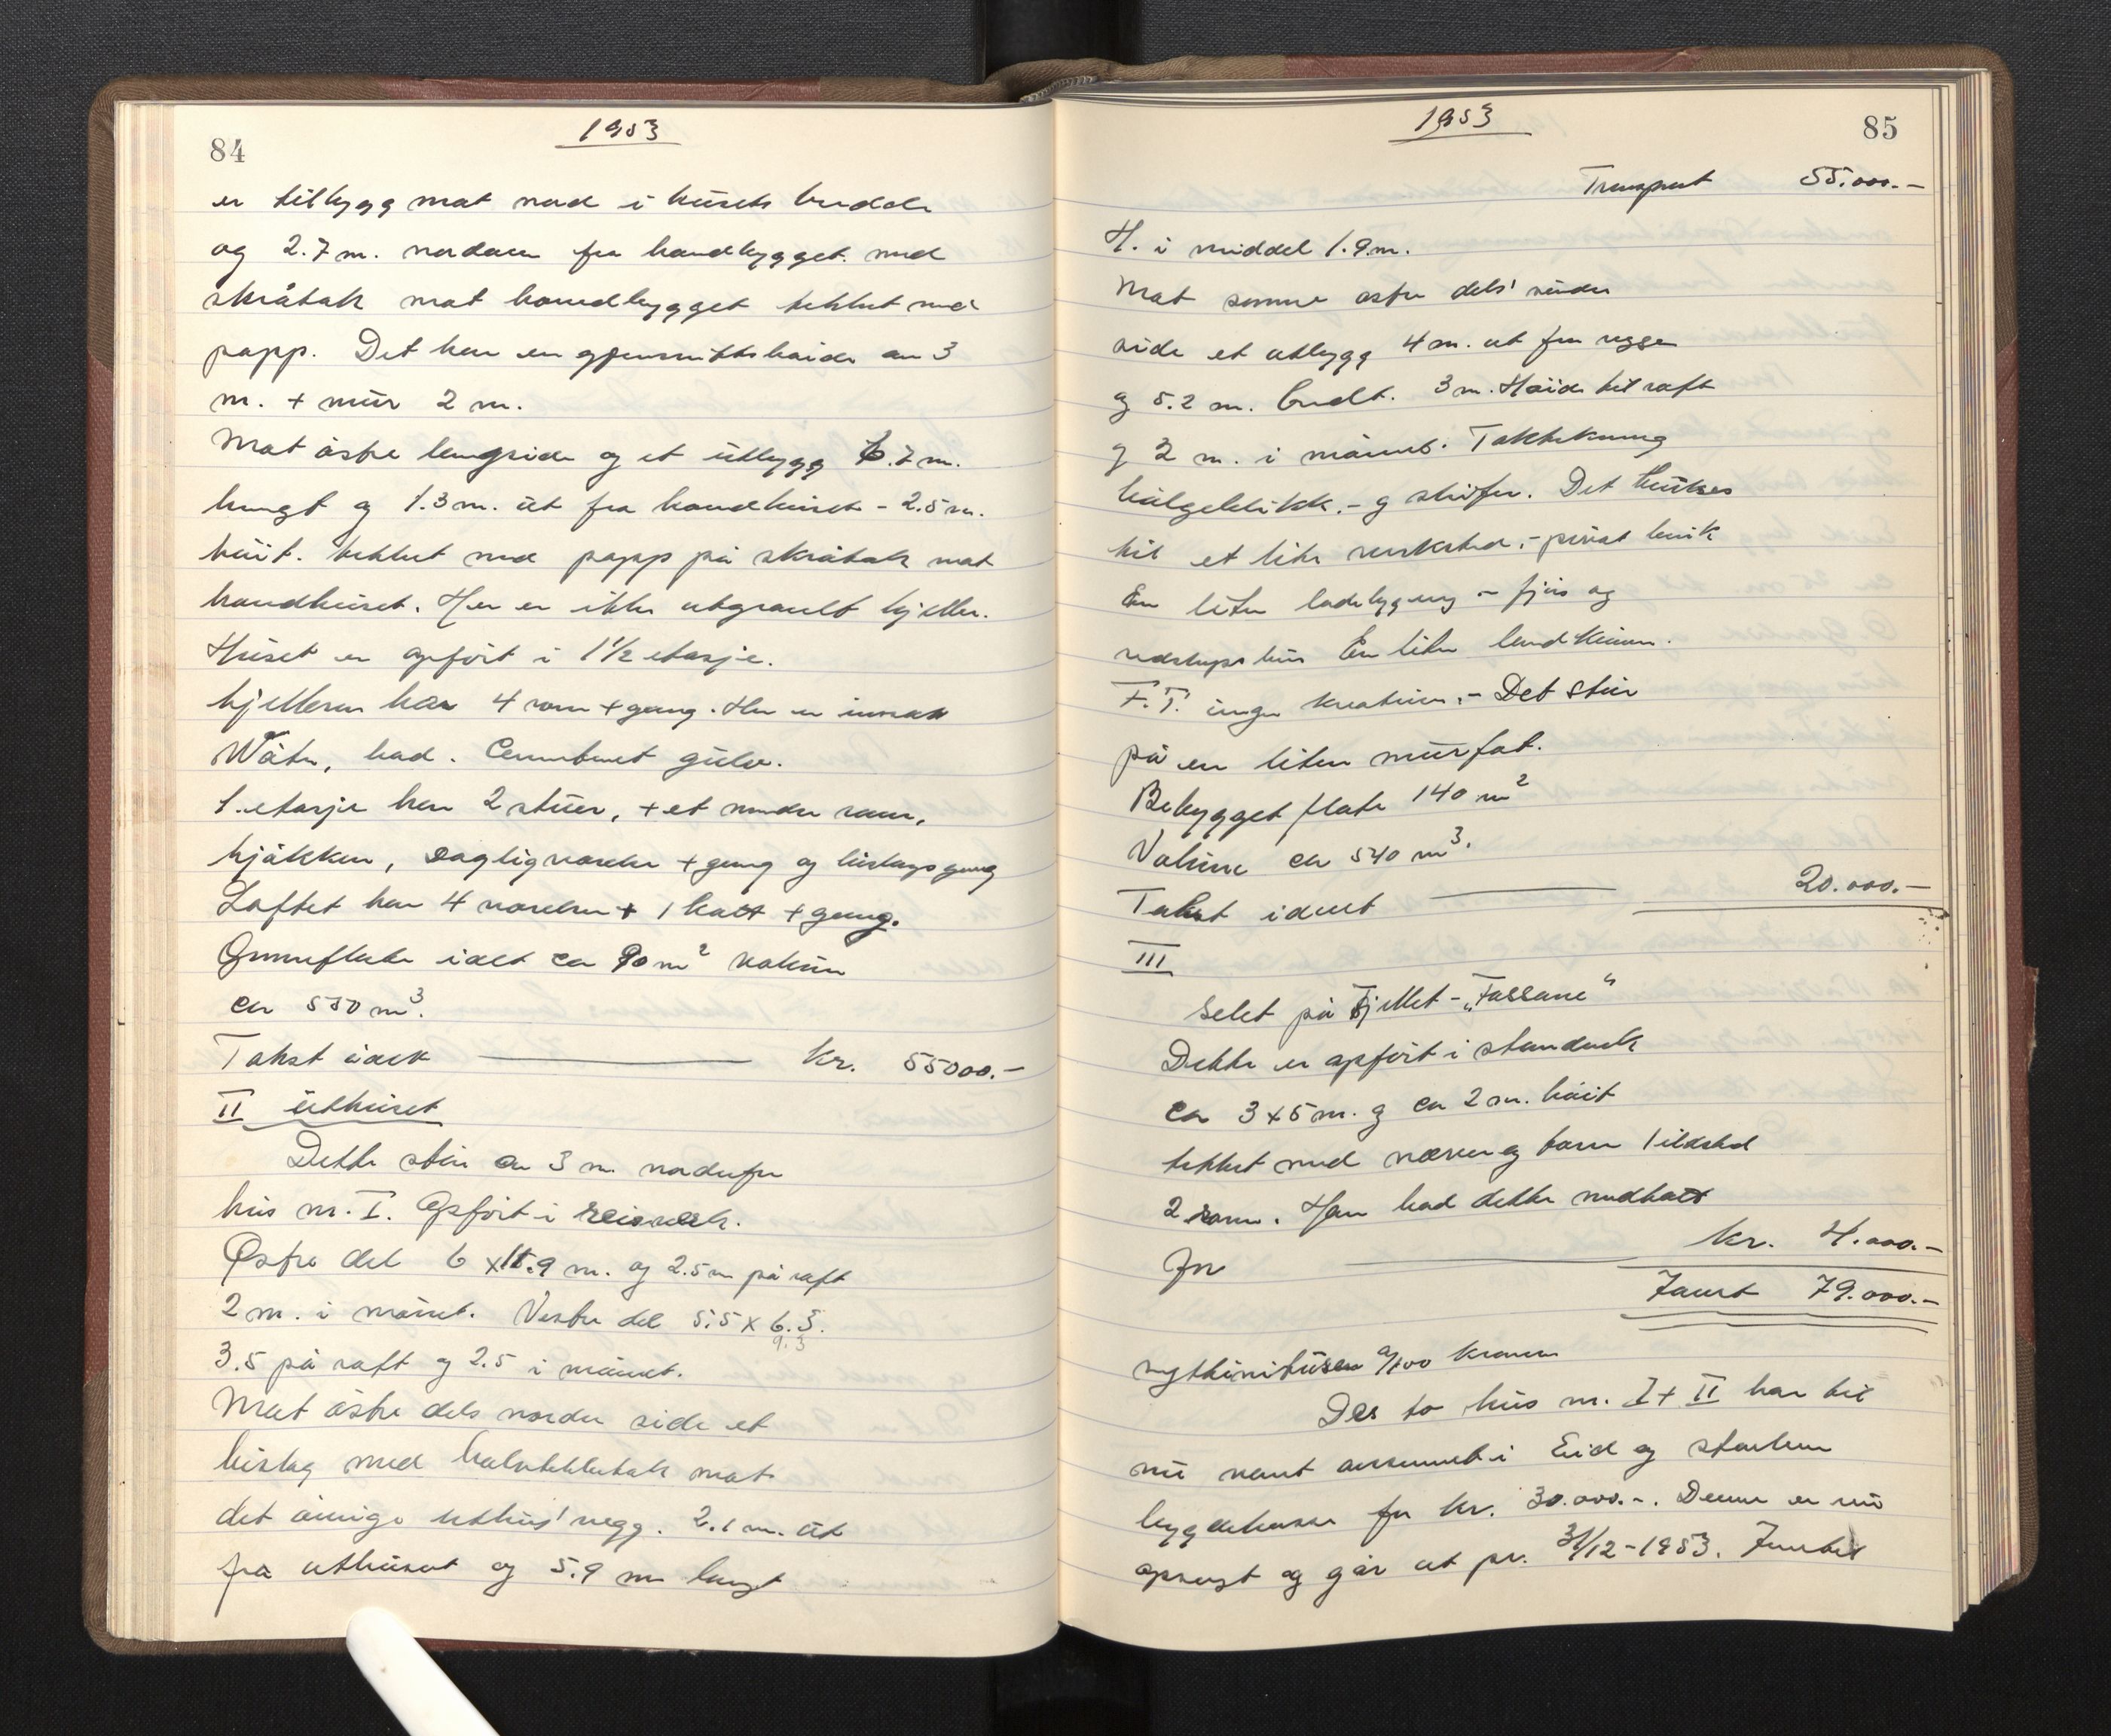 84
1953
er tilbygg mot nord i husets bredde
og 2.7 m. nordover fra hovedbygget med
skråtak mot hovedbygget tekket med
papp. Det har en gjennsnittshøide av 3
m. + mur 2 m.
Mot østre langside og et utbygg 6.7 m.
langt og 1.3 m. ut fra hovedhuset - 2.5 m.
høit. tekket med papp på skråtak mot
hovedhuset. Her er ikke utgravet kjeller.
Huset er opført i 1 1/2 etasje.
Kjelleren har 4 rom + gang. Her er
bad. Cementert gulv.
1. etasje har 2 stuer, + et mindre rom,
kjøkken, dagligværelse + gang og bislagsgang
Loftet har 4 værelser + 1 kott + gang.
Grunnflate ialt ca 90 m² volum
ca 550 m³.
Takst ialt kr. 55000.-
II Uthuset
Dette står ca 3 m. nordenfor
hus nr. I. Opført i reisverk.
Østre del 6 x 11.9 m. og 2.5 m på raft
2 m. i mønet. Vestre del 5.5 x 6.3.
9.3
3.5 på raft og 2.5 i mønet.
Mot østre dels nordre side et
bislag med halvtekketak mot
det øvrige uthus' vegg. 2.1 m. ut
fra uthuset og 5.9 m langt
1953
85
Transport 55.000.-
H. i middel 1.9 m.
Mot samme østre dels' søndre
side et utbygg 4 m. ut fra vegge
og 5.2 m. bredt. 3 m. Høide til raft
og 2 m. i mønet. Taktekning
bølgeblikk. - og skifer. Det brukes
til et lite verksted, - privat bruk
En liten ladebygning - fjøs og
redskapshus En liten landkunn.
F. T. inge kreaturer. - Det står
på en liten murfot.
Bebygget flate 140 m²
Volum ca 540 m³.
Takst ialt 20.000.-
III
Selet på Fjellet - „Fossane"
Dette er opført i standverk
ca 3 x 5 m. og ca 2 m. høit
tekket med never og torv Ildsted
2 rom. Han bad dette
for kr. 4.000.-
Samt 79.000.-
kroner
Des to hus nr. I + II har til
nu vært assurert i Eid og starheim
bygdekasse for kr. 30.000.-. Denne er nu
opsagt og går ut pr. 31/12-1953.